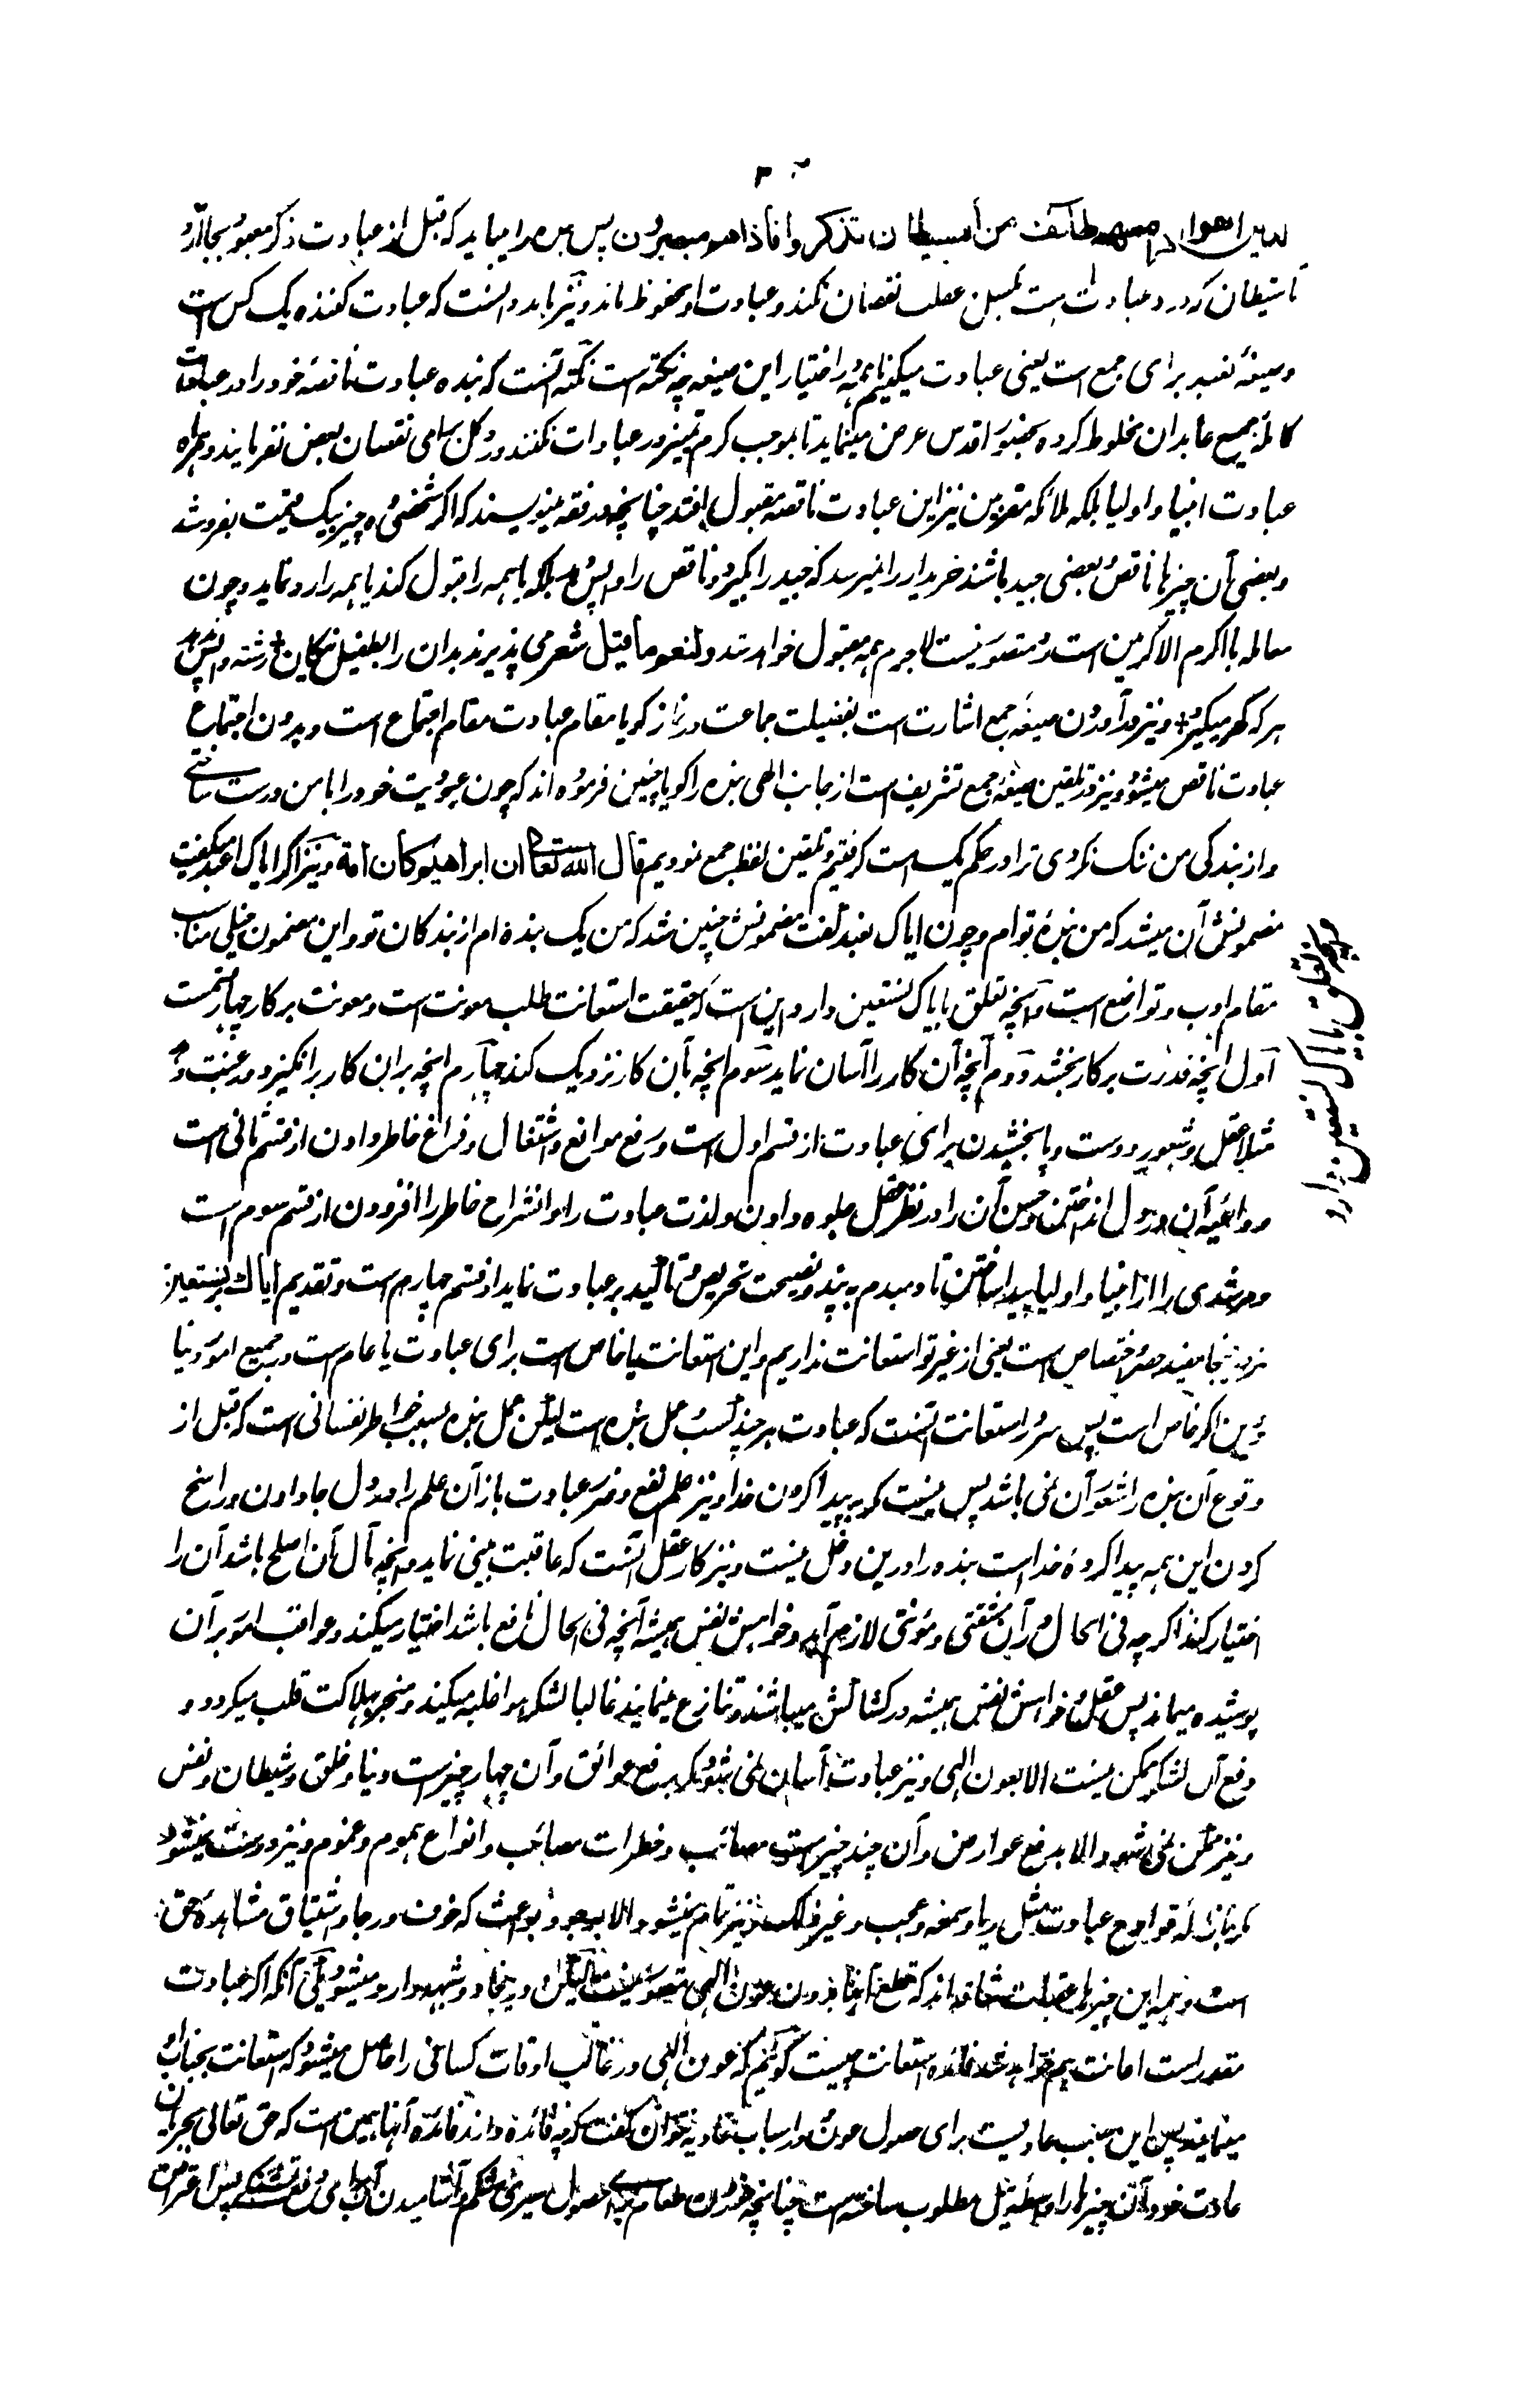 ۳۰
الذين اتقوا اذا مسهم طائف من الشيطان تذکروا فاذا هم مبصرون پس بنده را میباید که قبل از عبادت ذکر معبود بجا آرد
تا شیطان که درد عبادات است نقصان نکند و عبادت او محفوظ ماند و نیز باید دانست که عبادت کننده یک کس است
و صیغهٔ نعبد برای جمع است یعنی عبادت میکنیم ما همه در اختیار این صیغه چه نکته است نکته آنست که بنده عبادت ناقصهٔ خود را در عبادات
کاملهٔ جمیع عابدان مخلوط کرده بحضور اقدس عرض مینماید تا بموجب کرم تمیز در عبادات نکنند و رد کل بسامی نقصان بعض نفرمایند و همراه
عبادت انبیا و اولیا بلکه ملائکه مقربین نیز این عبادت ناقصه مقبول افتد چنانچه در فقه مینویسند که اگر شخصی ده چیز بیک قیمت بفروشد
و بعضی آن چیزها ناقص و بعضی جید باشند خریدار را نمیرسد که جید را بگیرد و ناقص را واپس دهد بلکه یا همه را قبول کند یا همه را رد نماید و چون
معامله با اکرم الاکرمین است رد متصور نیست لاجرم همه مقبول خواهد شد و لنعم ما قیل شعر می پذیرند بدان را بطفیل نیکان + رشته واپس ندهد
هر که گهر میگیرد + و نیز در آوردن صیغهٔ جمع اشارت است بفضیلت جماعت در نماز گویا مقام عبادت مقام اجتماع است و بدون اجتماع
عبادت ناقص میشود و نیز در تلقین صیغهٔ جمع تشریف است از جانب الهی بنده را گویا چنین فرموده اند که چون عبودیت خود را با من درست ساختی
و از بندگی من ننگ نکردی ترا در حکم یک امت گرفتیم و تلقین لفظ جمع نمودیم قال الله تعالی ان ابراهیم کان امة و نیز اگر ایاک اعبد میگفت
مضمونش آن میشد که من بندهٔ توام و چون ایاک نعبد گفت مضمونش چنین شد که من یک بنده ام از بندگان تو و این مضمون خیلی مناسب
مقام ادب و تواضع است و آنچه تعلق بایاک نستعین دارد این است که حقیقت استعانت طلب معونت است و معونت بر کار چهار قسمت
اول آنچه قدرت بر کار بخشد دوم آنچه آن کار را آسان نماید سوم آنچه بآن کار نزدیک کند چهارم آنچه بر آن کار برانگیزد و رغبت دهد
مثلا عقل و شعور و دست و پا بخشیدن برای عبادت از قسم اول است و رفع موانع و اشتغال و فراغ خاطر دادن از قسم ثانی است
و داعیه آن در دل انداختن و حسن آن را در نظر عقل جلوه دادن و لذت عبادت را و انشراح خاطر را افزودن از قسم سوم است
و مرشدی را از انبیا و اولیا پیدا ساختن تا دمبدم به پند و نصیحت تحریص و تاکید بر عبادت نماید از قسم چهارم است و تقدیم ایاک بر نستعین
درینجا مفید حصر و اختصاص است یعنی از غیر تو استعانت نداریم و این استعانت یا خاص است برای عبادت یا عام است در جمیع امور دنیا
و دین اگر خاص است پس سر در استعانت آنست که عبادت هر چند کسب و عمل بنده است لیکن عمل بنده بسبب خواطر نفسانی است که قبل از
وقوع آن بنده را شعور آن نمی باشد پس نیست که به پیدا کردن خدا و نیز علم نفع و ضرر عبادت باز آن علم را در دل جا دادن و راسخ
کردن این همه پیدا کردهٔ خدا است بنده را درین دخل نیست و نیز کار عقل آنست که عاقبت بینی نماید و آنچه مآل آن اصلح باشد آن را
اختیار کند اگر چه فی الحال در آن مشقتی و مؤنتی لازم آید و خواهش نفس همیشه آنچه فی الحال نافع باشد اختیار میکند و عواقب امور بر آن
پوشیده میماند پس عقل و خواهش نفس همیشه در کشاکش میباشند و تنازع مینمایند غالبا لشکر هوا غلبه میکند و منجر بهلاکت قلب میگردد و
دفع آن لشکر ممکن نیست الا بعون الهی و نیز عبادت آسان نمی شود مگر برفع عوائق و آن چهار چیز است دنیا و خلق و شیطان و نفس
و نیز ممکن نمی شود الا بدفع عوارض و آن چند چیز است مصائب و خطرات مصاعب و انواع هموم و غموم و نیز درست نمیشود
مگر بازالهٔ قوادح عبادت مثل ریا و سمعه و عجب و غیر ذلک و نیز تمام نمیشود الا بوجود بواعث که خوف و رجا و اشتیاق مشاهدهٔ حق
است و همه این چیزها عقبات شاقه اند که قطع آنها بدون عون الهی متصور نیست لیکن درینجا دو شبهه وارد میشود یکی آنکه اگر عبادت
مقدر است اعانت هم خواهد شد فائده استعانت چیست گوئیم که عون الهی در غالب اوقات کسانی را حاصل میشود که استعانت بجناب او
مینمایند پس این سبب عادیست برای حصول عون و در اسباب عادیه نتوان گفت که چه فائده دارند فائدهٔ آنها همین است که حق تعالی بجریان
عادت خود آن چیزها را وسیلهٔ نیل مطلوب ساخته است چنانچه خوردن طعام برای حصول سیری شکم و آشامیدن آب برای رفع تشنگی پس اعتراض
آنچه تعلق بایاک نستعین دارد